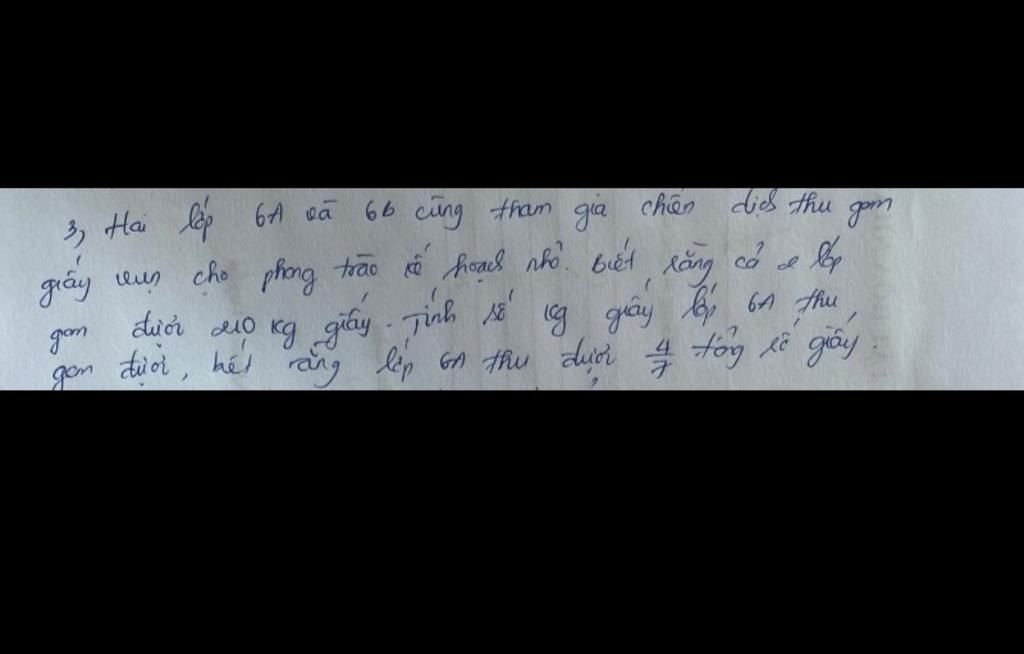 3, Hai lớp 6A và 6b cũng tham gia chiến dịch thu gom
giấy vụn cho phong trào kế hoạch nhỏ. Biết rằng cả 2 lớp
gom được 210 kg giấy. Tính số kg giấy lớp 6A thu
gom được, biết rằng lớp 6A thu được 4/7 tổng số giấy.